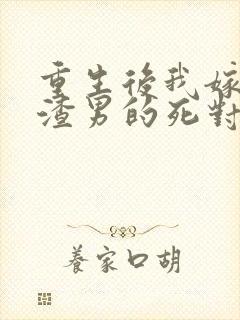 重生後我嫁
渣男的死對
養家口胡